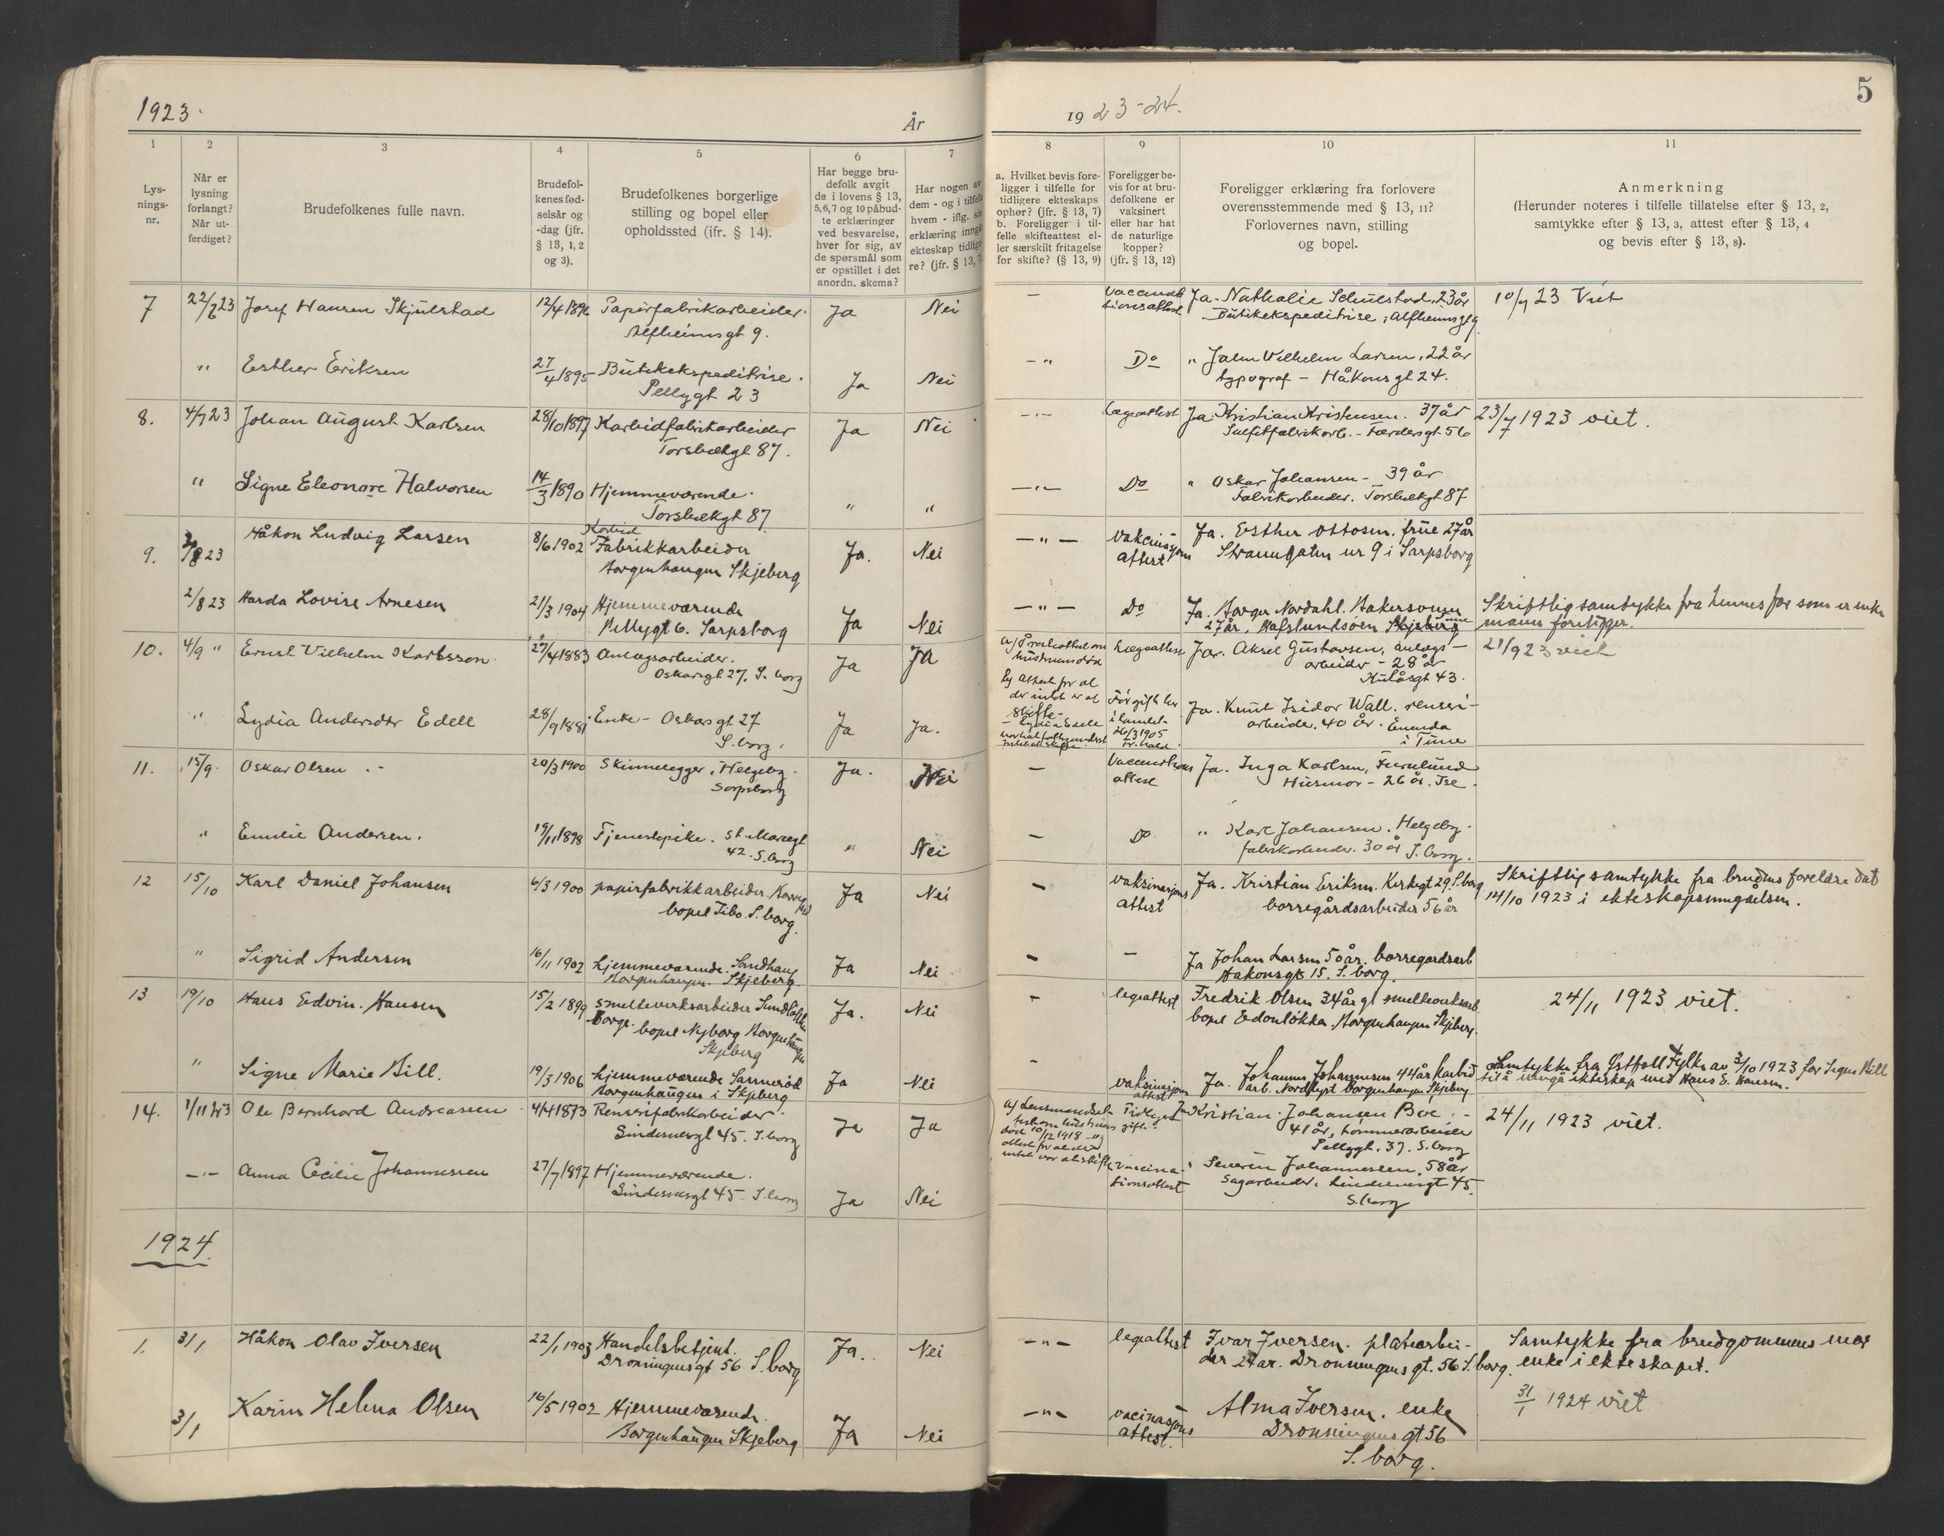 1923.
År
1
2
3
4
5
6
7
Lys-
nings-
nr.
Når er
lysning
forlangt?
Når ut-
ferdiget?
Brudefolkenes fulle navn.
Brudefol-
kenes fød-
selsår og
-dag (jfr.
§ 13, 1, 2
og 3).
Brudefolkenes borgerlige
stilling og bopel eller
opholdssted (ifr. § 14).
Har begge bru-
defolk avgit
de i lovens § 13,
5,6,7 og 10 påbud-
te erklæringer
ved besvarelse,
hver for sig, av
de spørsmål som
er opstillet i det
anordn. skema?
Har nogen av
dem - og i tilfelle
hvem - iflg. sin
erklæring inngå
ekteskap tidlige-
re? (jfr. § 13, 7
7 22/6 23 Josef Hansen Skjulstad 12/4 1896 Papirfabrikarbeider. Ja Nei
Alfheimsgt 9.
" Esther Eriksen 27/4 1895 Butikekspeditrise. Ja Nei
Pellygt 23
8. 4/7 23 Johan August Karlsen 28/10 1897 Karbidfabrikarbeider Ja Nei
Torsbækgt 87.
" Signe Eleonore Halvorsen 14/3 1890 Hjemmeværende. " "
Torsbækgt 87
Karbid
9. 23 Håkon Ludvig Larsen 8/6 1902 Fabrikkarbeider Ja. Nei
Borgenhaugen Skjeberg
2/8 23 Harda Lovise Arnesen 21/3 1904 Hjemmeværende Ja Nei
Pellygt 6. Sarpsborg
10. 4/9 " Ernst Vilhelm Karlsson 27/4 1883 Anlægsarbeider. Ja Ja
Oskarsgt 27. S.borg
" Lydia Andersdtr Edell 28/9 1881 Enke - Oskarsgt 27 Ja Ja.
S.borg.
11. 15/9 - Oskar Olsen 20/3 1900 Skinnelegger, Helgeby. Ja. Nei
Sarpsborg
" Emilie Andersen. 19/11 1898 Tjenestepike. St. Mariegt " Nei
42 - S.borg
12 15/10 Karl Daniel Johansen 6/3 1900 papirfabrikkarbeider. Ja Nei
bopel Tibo S.borg.
" Sigrid Andersen 16/11 1902 hjemmeværende. Sandhaug Ja Nei
Borgenhaugen. Skjeberg.
13 19/10 Hans Edvin. Hansen 15/2 1899 smelteverksarbeider Ja. Nei
Borge. bopel Nyborg Borgenhaugen
Skjeberg
" Signe Marie Bill. 19/3 1906 hjemmeværende Sannerød Ja Nei
Borgenhaugen i Skjeberg
14. 1/11 23 Ole Bernhard Andreassen 4/4 1873 Renserifabrikarbeider. Ja Ja
Lindemsgt 45. S.borg
-"- Anna Cecilie Johannessen 27/7 1897 Hjemmeværende. Ja Nei
Lindemsgt 45 - S.borg
1924.
1. 3/1 Håkon Olav Iversen 22/1 1903 Handelsbetjent. Ja. Nei
Dronningensgt 56 S.borg
3/1 Karin Helena Olsen 16/5 1902 Hjemmeværende. Ja Nei
Borgenhaugen Skjeberg
5
1923-24.
8
9
10
11
a. Hvilket bevis fore-
ligger i tilfelle for
tidligere ekteskaps
ophør? (jfr. § 13, 7)
b. Foreligger i til-
felle skifteattest el-
ler særskilt fritagelse
for skifte? (§ 13, 9)
Foreligger be-
vis for at bru-
defolkene er
vaksinert
eller har hat
de naturlige
kopper?
(jfr. § 13, 12)
Foreligger erklæring fra forlovere
overensstemmende med § 13, 11?
Forlovernes navn, stilling
og bopel.
Anmerkning
(Herunder noteres i tilfelle tillatelse efter § 13, 2,
samtykke efter § 13, 3, attest efter § 13, 4
og bevis efter § 13, 8).
- Vaccina- Ja. Nathalie Schulstad, 23 år 10/7 23 Viet
tionsattest Butikekspeditrise, Alfheimsgt 9
-"- Do " Vilhelm Larsen, 22 år
typograf - Håkonsgt 24.
-"- Lægeattest Ja. Kristian Kristensen. 37 år 23/7 1923 viet.
Sulfitfabrikarb. - Færdersgt. 56
-"- Do " Oskar Johansen - 39 år
Fabrikarbeider. Torsbækgt 87
-"- vaksinasjons Ja. Esther Ottosen, frue 27 år
attest Strandgaten nr 9 i Sarpsborg
-"- Do Ja. Borger Nordahl. Skriftlig samtykke fra hennes far som er enke
27 år, Hafslundsøen Skjeberg mann foreligger.
Lægeattest Ja. Aksel Gustavsen, anlegs- 21/9 23 viet
arbeider - 28 år
Kulåsgt 43.
b) Attest for at
der intet er at
skifte -
Lydia Edell
Før gift her
i landet
1905
Ja. Knut Isidor Wall. renseri-
arbeider. 40 år.
i Tune
- Vaccinations Ja. Inga Karlsen, Furulund
attest Husmor - 26 år.
- Do " Karl Johansen. Helgeby.
fabrikarbeider. 30 år S.borg.
- vaksinasjons Ja. Kristian Eriksen. Kirkegt 29. S.borg Skriftlig samtykke fra brudens foreldre dat
attest borregårdsarbeider 56 år 14/10 1923 i ekteskapsinngåelsen.
- - Ja Johan Larsen 50 år. borregardsarb
Hakonsgt 15. S.borg.
- legeattest Fredrik Olsen 34 år gl smelteverksarb 24/11 1923 viet.
bopel Edonløkka, Borgenhaugen Skjeberg.
- vaksinasjons Ja. Johannes Johannesen 44 år karbid Samtykke fra Østfold Fylke av 3/10 1923 for Signe Bill
attest arb. Borgenhaugen Skjeberg til å inngå ekteskap med Hans E. Hansen.
a) Lensmandsat-
test om hustruens
død 10/12 1918
Tidligere
gift.
Ja Kristian Johansen Boe. 24/11 1923 viet.
41 år, tømmerarbeider
Pellygt. 37. S.borg
Vaccina- " Severin Johannessen, 58 år
tionsattest Sagarbeider, Lindemsgt 45.
S.borg
-"- legeattest Ivar Iversen. platearbei- Samtykke fra brudgommens mor
der 27 år. Dronningensgt. 56 S.borg. enke i ekteskapet.
31/1 1924 viet
-"- vacinasjons Alma Iversen. enke
attest. Dronningensgt 56
S.borg.